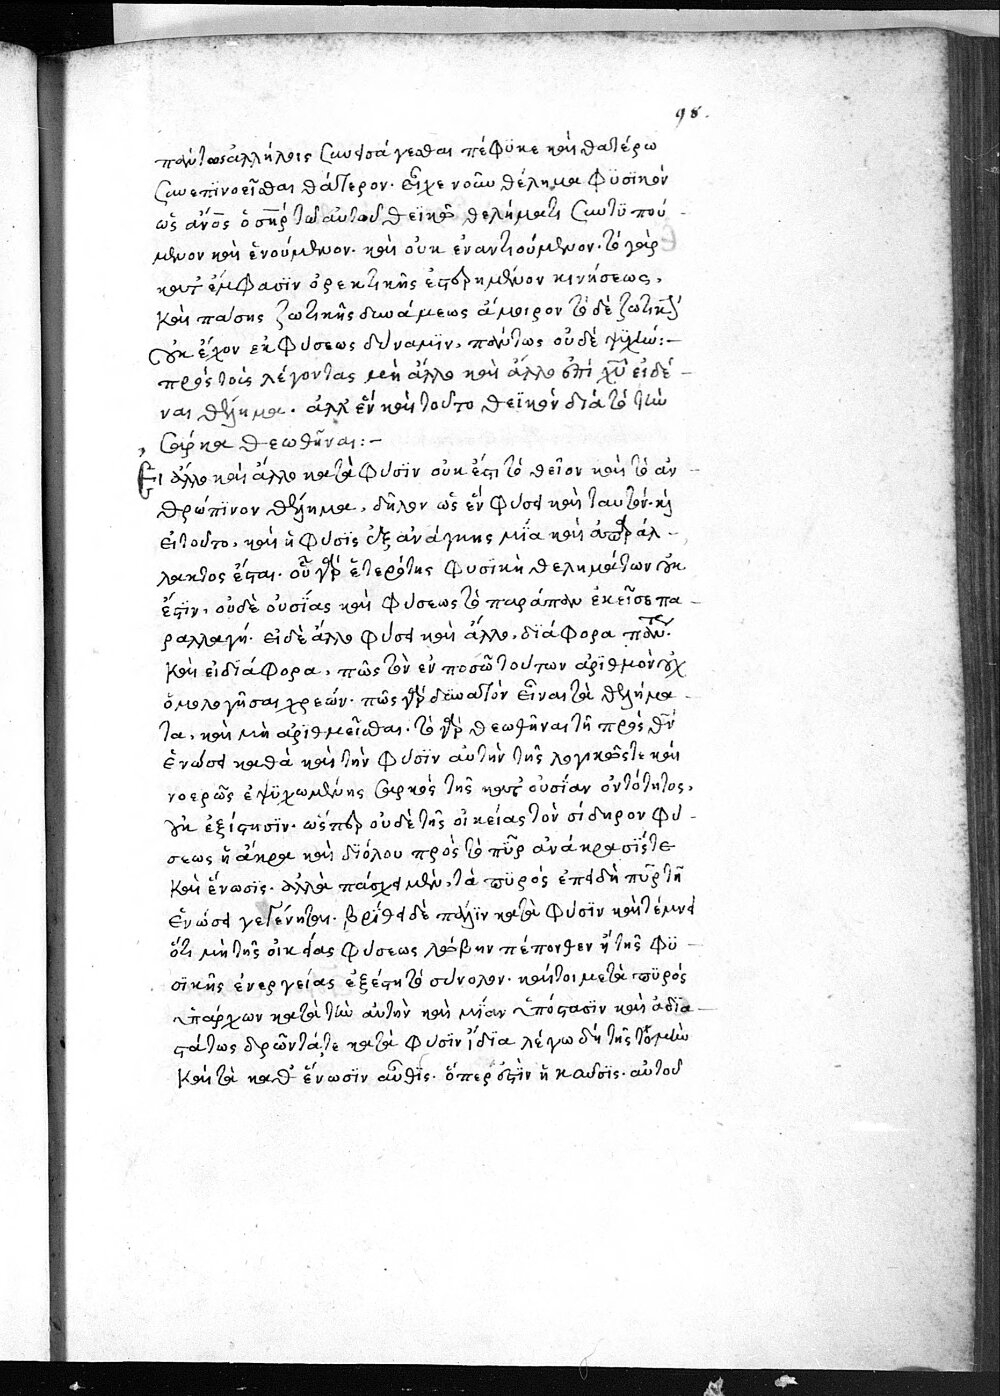 98.
πάντως ἀλλήλοις συνεισάγεσθαι πέφυκε καὶ θατέρω
συνεπϊνοεῖσθαι θάτερον. εἶχε γοῦν θέλημα φϋσϊκὸν
ὡς ἄνος ὁ σηρ τῶ αὐτοῦ θεϊκῶ θελήματι συντϋπού-
μενον καὶ ἑνούμενον. καὶ οὐκ ἐναντιούμενον. τὸ γὰρ
κατ' ἔμφασϊν ὀρεκτικῆς ἐστερημένον κινήσεως,
καὶ πάσης ζωτικῆς δυνάμεως ἄμοιρον τὸ δὲ ζωτικὴν
οὐκ ἔχον ἐκ φύσεως δύναμϊν, πάντως οὐδὲ ψϋχήν:-
πρὸς τοὺς λέγοντας μὴ ἄλλο καὶ ἄλλο ἐπὶ χυ εἰδέ-
ναι θέλημα. ἀλλ' ἓν καὶ τοῦτο θεϊκὸν διὰ τὸ τὴν
σάρκα θεωθῆναι:-
Εἰ ἄλλο καὶ ἄλλο κατὰ φύσϊν οὐκ ἔστι τὸ θεῖον καὶ τὸ ἀν-
θρώπϊνον θέλημα, δῆλον ὡς ἓν φύσει καὶ ταυτόν. καὶ
εἰ τοῦτο, καὶ ἡ φύσϊς ἐξ ἀνάγκης μΐα καὶ ἀπαράλ-
λακτος ἔσται. οὗ γὰρ ἑτερότης φυσϊκὴ θελημάτων οὐκ
ἔστϊν, οὐδὲ οὐσΐας καὶ φύσεως τὸ παράπαν ἐκεῖσε πα-
ραλλαγή. εἰ δὲ ἄλλο φύσει καὶ ἄλλο, διάφορα πάντως.
καὶ εἰ διάφορα, πῶς τὸν ἐν ποσῶ τούτων ἀριθμὸν οὐχ
ὁμολογῆσαι χρεών. πῶς γὰρ δυνατὸν εἶναι τὰ θελήμα-
τα, καὶ μὴ ἀριθμεῖσθαι. τὸ γὰρ θεωθῆναι τῆ πρὸς θν
ἑνώσει καθὰ καὶ τὴν φύσϊν αὐτὴν τῆς λογικῶς τε καὶ
νοερῶς ἐψϋχωμένης σαρκὸς τῆς κατ' οὐσΐαν ὀντότητος,
οὐκ ἐξίστησϊν. ὥσπερ οὐδὲ τῆς οἰκείας τὸν σίδηρον φύ-
σεως ἡ ἄκρα καὶ διόλου πρὸς τὸ πῦρ ἀνάκρασϊς τε
καὶ ἕνωσϊς. ἀλλὰ πάσχει μὲν, τὰ πϋρὸς ἐπειδὴ πῦρ τῆ
ἑνώσει γεγένηται. βρίθει δὲ πάλϊν κατὰ φύσϊν καὶ τέμνει
ὅτι μὴ τῆς οἰκείας φύσεως λώβην πέπονθεν ἢ τῆς φϋ-
σϊκῆς ἐνεργείας ἐξέστη τὸ σύνολον. καίτοι μετὰ πϋρὸς
ὑπάρχων κατὰ τὴν αὐτὴν καὶ μΐαν ὑπόστασϊν καὶ ἀδια-
στάτως δρῶν τά τε κατὰ φύσϊν ἰδΐα λέγω δὴ τῆς τομὴν
καὶ τὰ καθ' ἕνωσϊν αὖθϊς. ὅπερ ἐστὶν ἡ καῦσϊς. αὐτοῦ